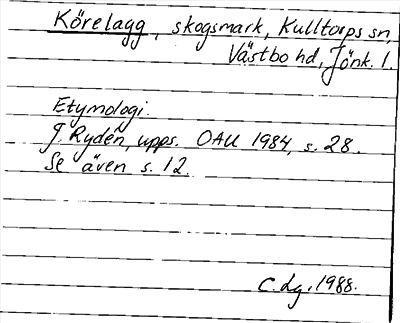 Körelagg, skogsmark, Kulltorps sn,
Västbo hd, Jönk. l.
Etymologi.
J. Rydén, upps. OAU 1984, s. 28.
Se även s. 12.
C. Lg. 1988.